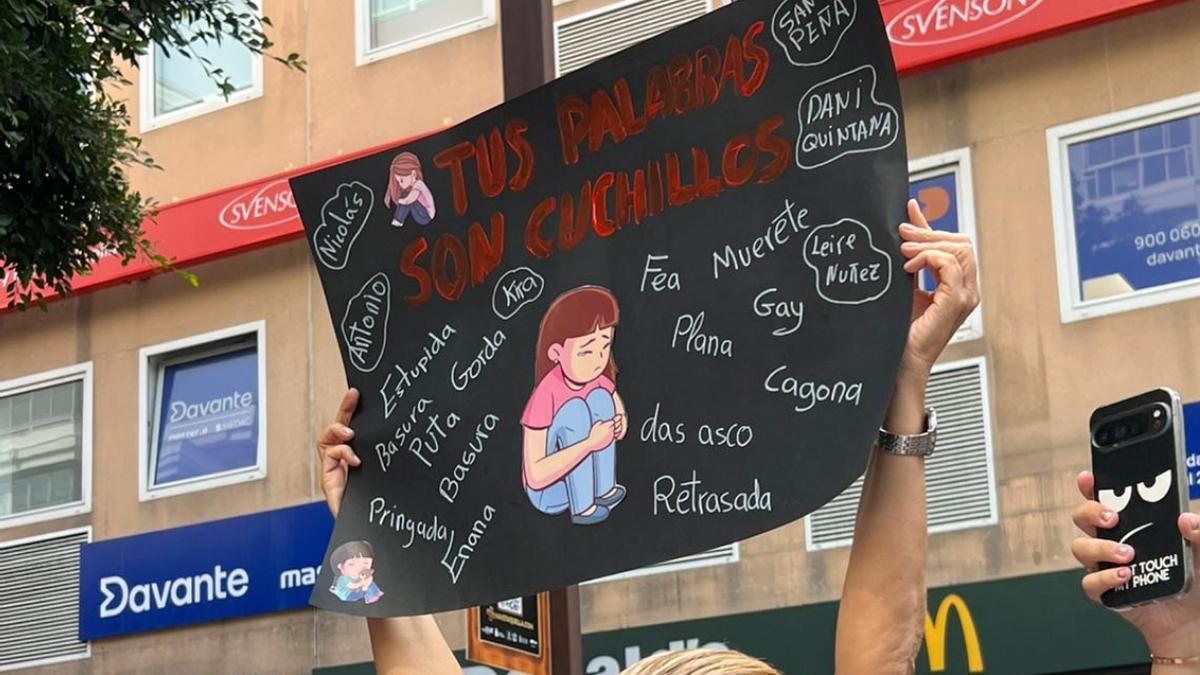 SVENSON
SVENSO
TUS PALABRAS
SON CUCHILLOS
SAN
PEÑA
DANi
QUINTANA
Nicolás
Antonio
Kira
LEIRE
NUÑEZ
Estupida
Gorda
Basura
Puta
Basura
Pringada
Enana
Fea
Muerete
Gay
Plana
Cagona
das asco
Retrasada
Davante
900 060
davan
Davante
mas
ald's
T TOUCH
MY PHONE